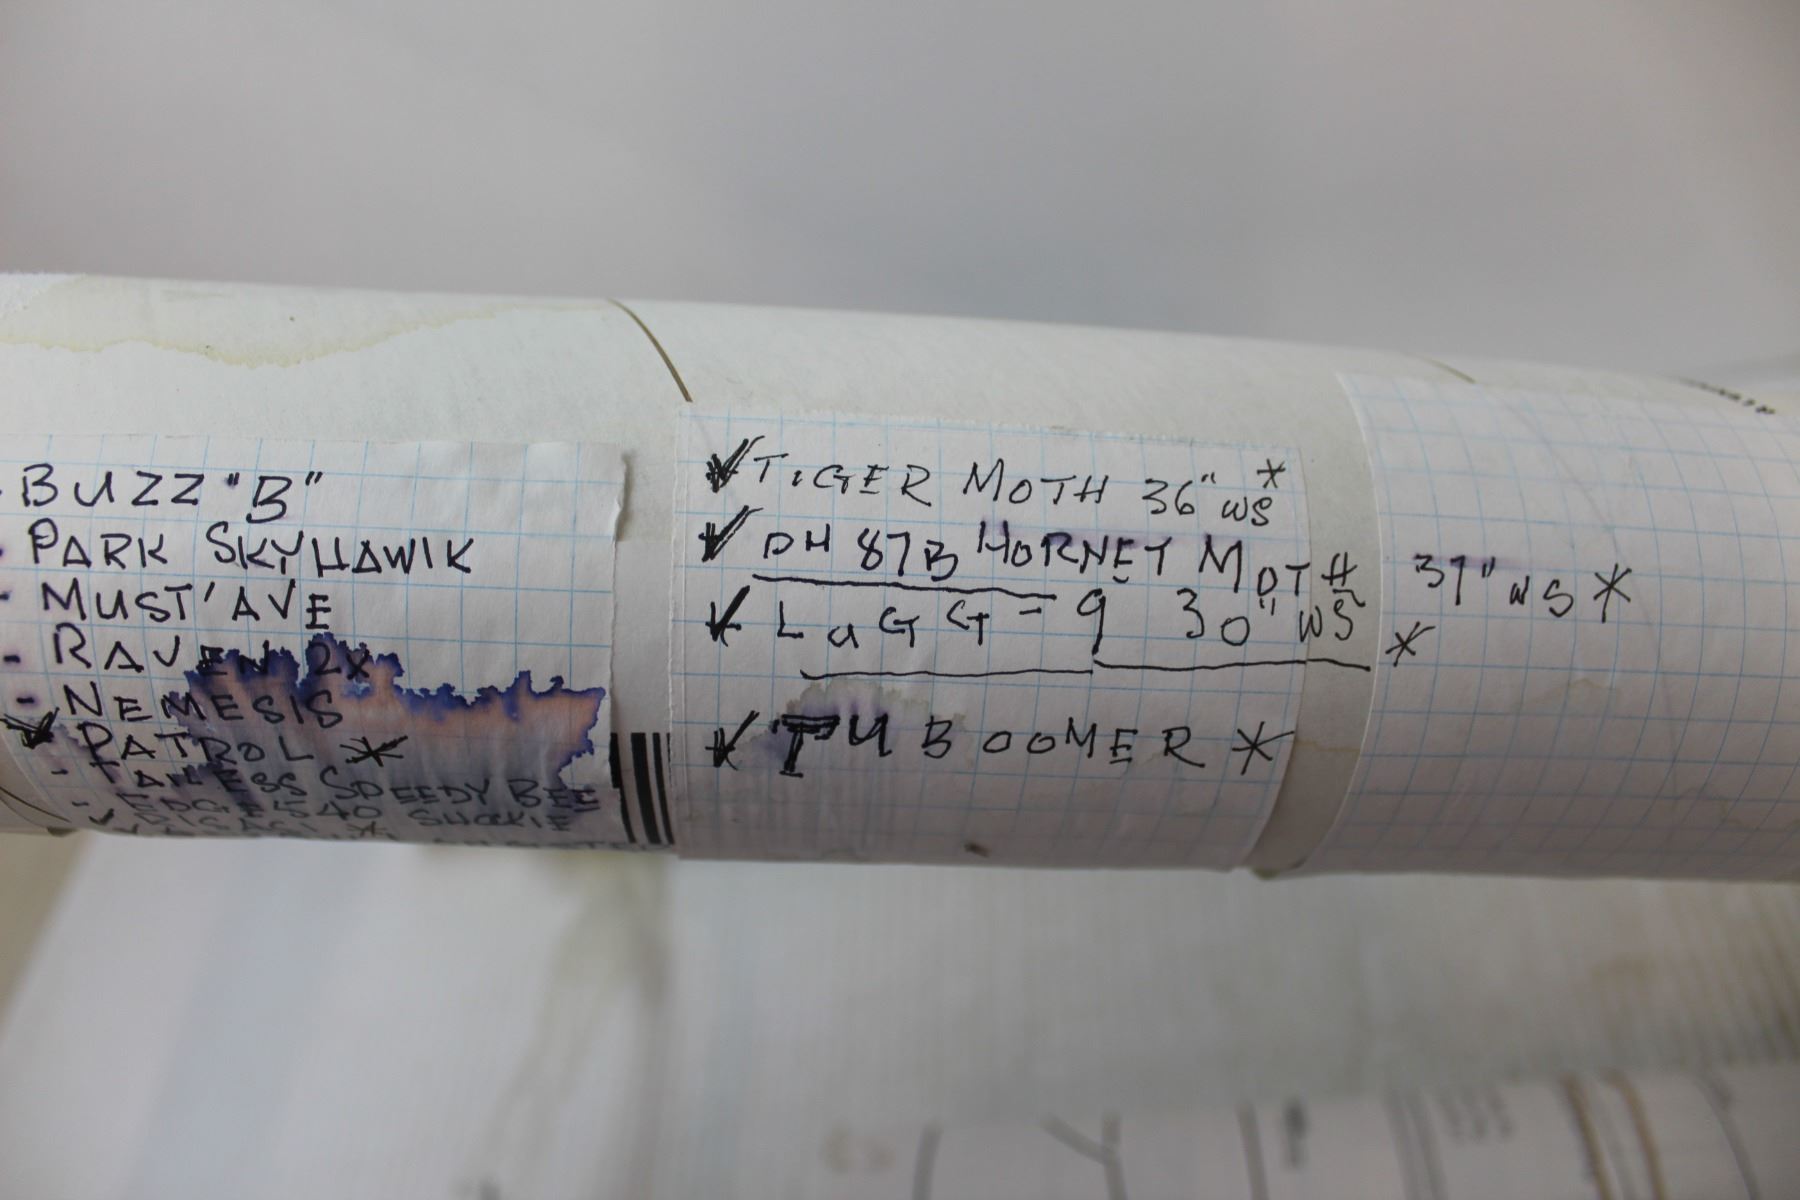 - BUZZ "B"
- PARK SKYHAWK
- MUST'AVE
- RAVEN 2X
- NEMESIS
✓ PATROL *
- TAILLESS SPEEDY BEE
- EDGE 540 SHOCKIE
✓ TIGER MOTH 36" WS *
✓ DH 87B HORNET MOTH 37" WS *
✓ LaGG-9 30" WS *
✓ PU BOOMER *